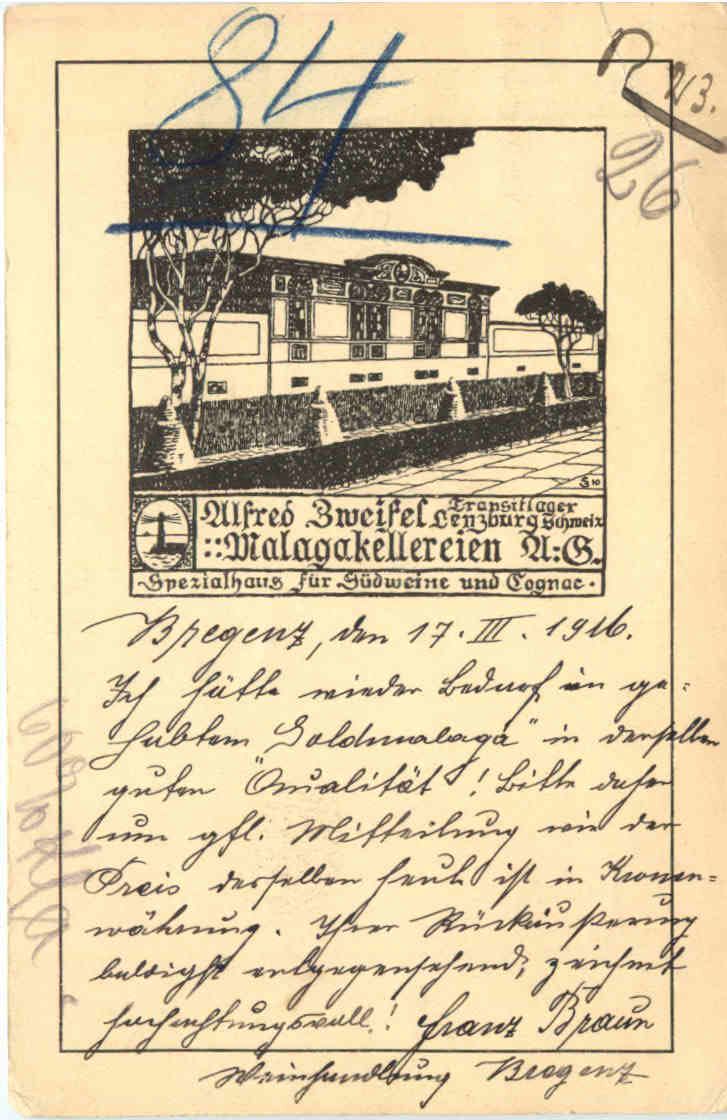 84
R 213.
26
Alfred Zweifel Transitlager
Lenzburg Schweiz
::Malagakellereien A:G.
Spezialhaus für Südweine und Cognac.
Bregenz, den 17. III. 1916.
Ich hätte wieder Bedarf in ge=
habtem „Goldmalaga" in derselben
guten Qualität! Bitte daher
um gfl. Mitteilung wie der
Preis desselben heute ist in Kronen=
währung. Ihrer Rückäußerung
baldigst entgegensehend, zeichnet
hochachtungsvoll! Franz Braun
Weinhandlung Bregenz